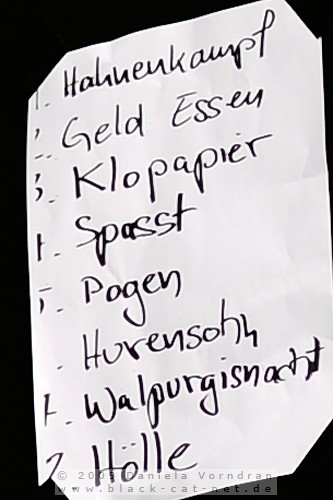 1. Hahnenkampf
2. Geld Essen
3. Klopapier
4. Spasst
5. Pogen
. Hurensohn
7. Walpurgisnacht
Hölle
© 2009 Daniela Vorndran
www.black-cat-net.de